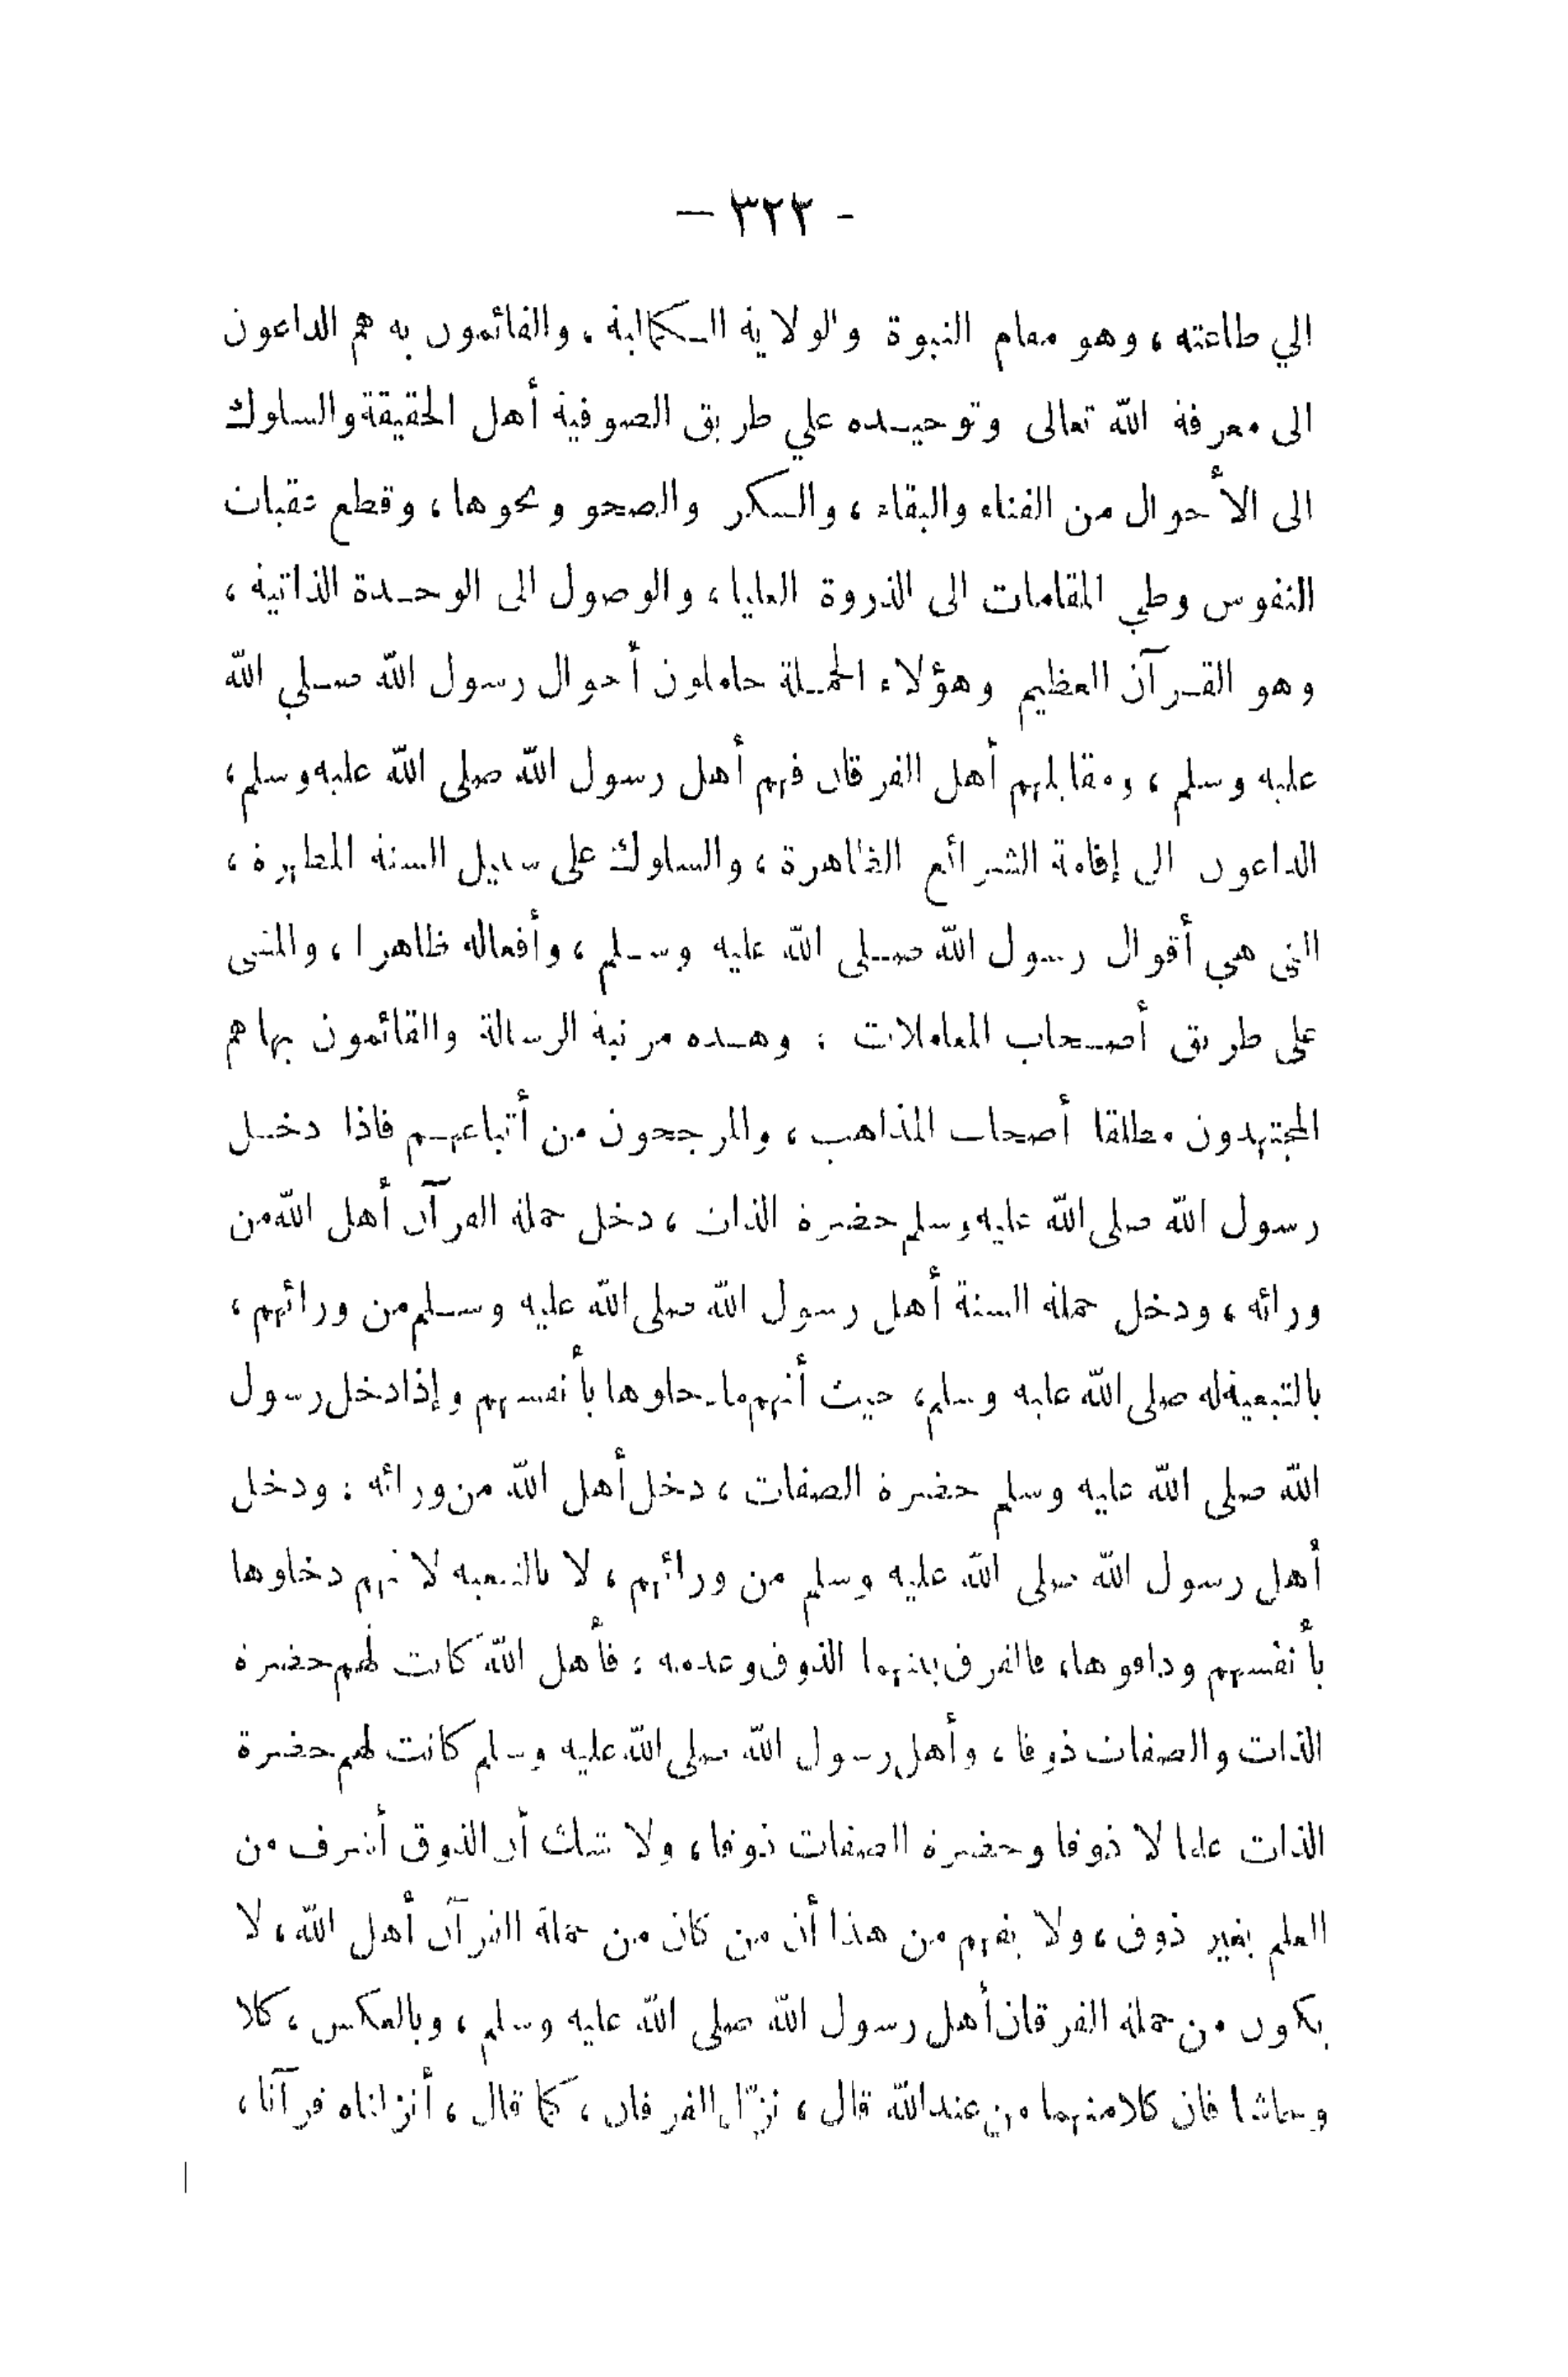 - ٣٢٣ -
الي طاعته ، وهو مقام النبوة والولاية الكمالية ، والقائمون به هم الداعون
الى معرفة الله تعالى وتوحيده علي طريق الصوفية أهل الحقيقة والسلوك
الى الأحوال من الفناء والبقاء ، والسكر والصحو ونحوها ، وقطع عقبات
النفوس وطي المقامات الى الذروة العليا ، والوصول الى الوحدة الذاتية ،
وهو القرآن العظيم وهؤلاء الحملة حاملون أحوال رسول الله صلي الله
عليه وسلم ، ومقابلهم أهل الفرقان فهم أهل رسول الله صلى الله عليه وسلم ،
الداعون الى إقامة الشرائع الظاهرة ، والسلوك على سبيل السنة المطهرة ،
التي هي أقوال رسول الله صلى الله عليه وسلم ، وأفعاله ظاهرا ، والمشى
على طريق أصحاب المعاملات ؛ وهذه مرتبة الرسالة والقائمون بها هم
المجتهدون مطلقا أصحاب المذاهب ، والمرجحون من أتباعهم فاذا دخل
رسول الله صلى الله عليه وسلم حضرة الذات ، دخل حملة القرآن أهل الله من
ورائه ، ودخل حملة السنة أهل رسول الله صلى الله عليه وسلم من ورائهم ،
بالتبعية له صلى الله عليه وسلم ، حيث أنهم ما دخلوها بأنفسهم وإذا دخل رسول
الله صلى الله عليه وسلم حضرة الصفات ، دخل أهل الله من ورائه ؛ ودخل
أهل رسول الله صلى الله عليه وسلم من ورائهم ، لا بالتبعية لانهم دخلوها
بأنفسهم وذاقوها ، فالفرق بينهما الذوق وعدمه ؛ فأهل الله كانت لهم حضرة
الذات والصفات ذوقا ، وأهل رسول الله صلى الله عليه وسلم كانت لهم حضرة
الذات علما لا ذوقا وحضرة الصفات ذوقا ، ولا شك أن الذوق أشرف من
العلم بغير ذوق ، ولا يفهم من هذا أن من كان من حملة القرآن أهل الله ، لا
يكون من حملة الفرقان أهل رسول الله صلى الله عليه وسلم ، وبالعكس ، كلا
وحاشا فان كلا منهما من عند الله قال ، نزّل الفرقان ، كما قال ، أنزلناه قرآنا ،